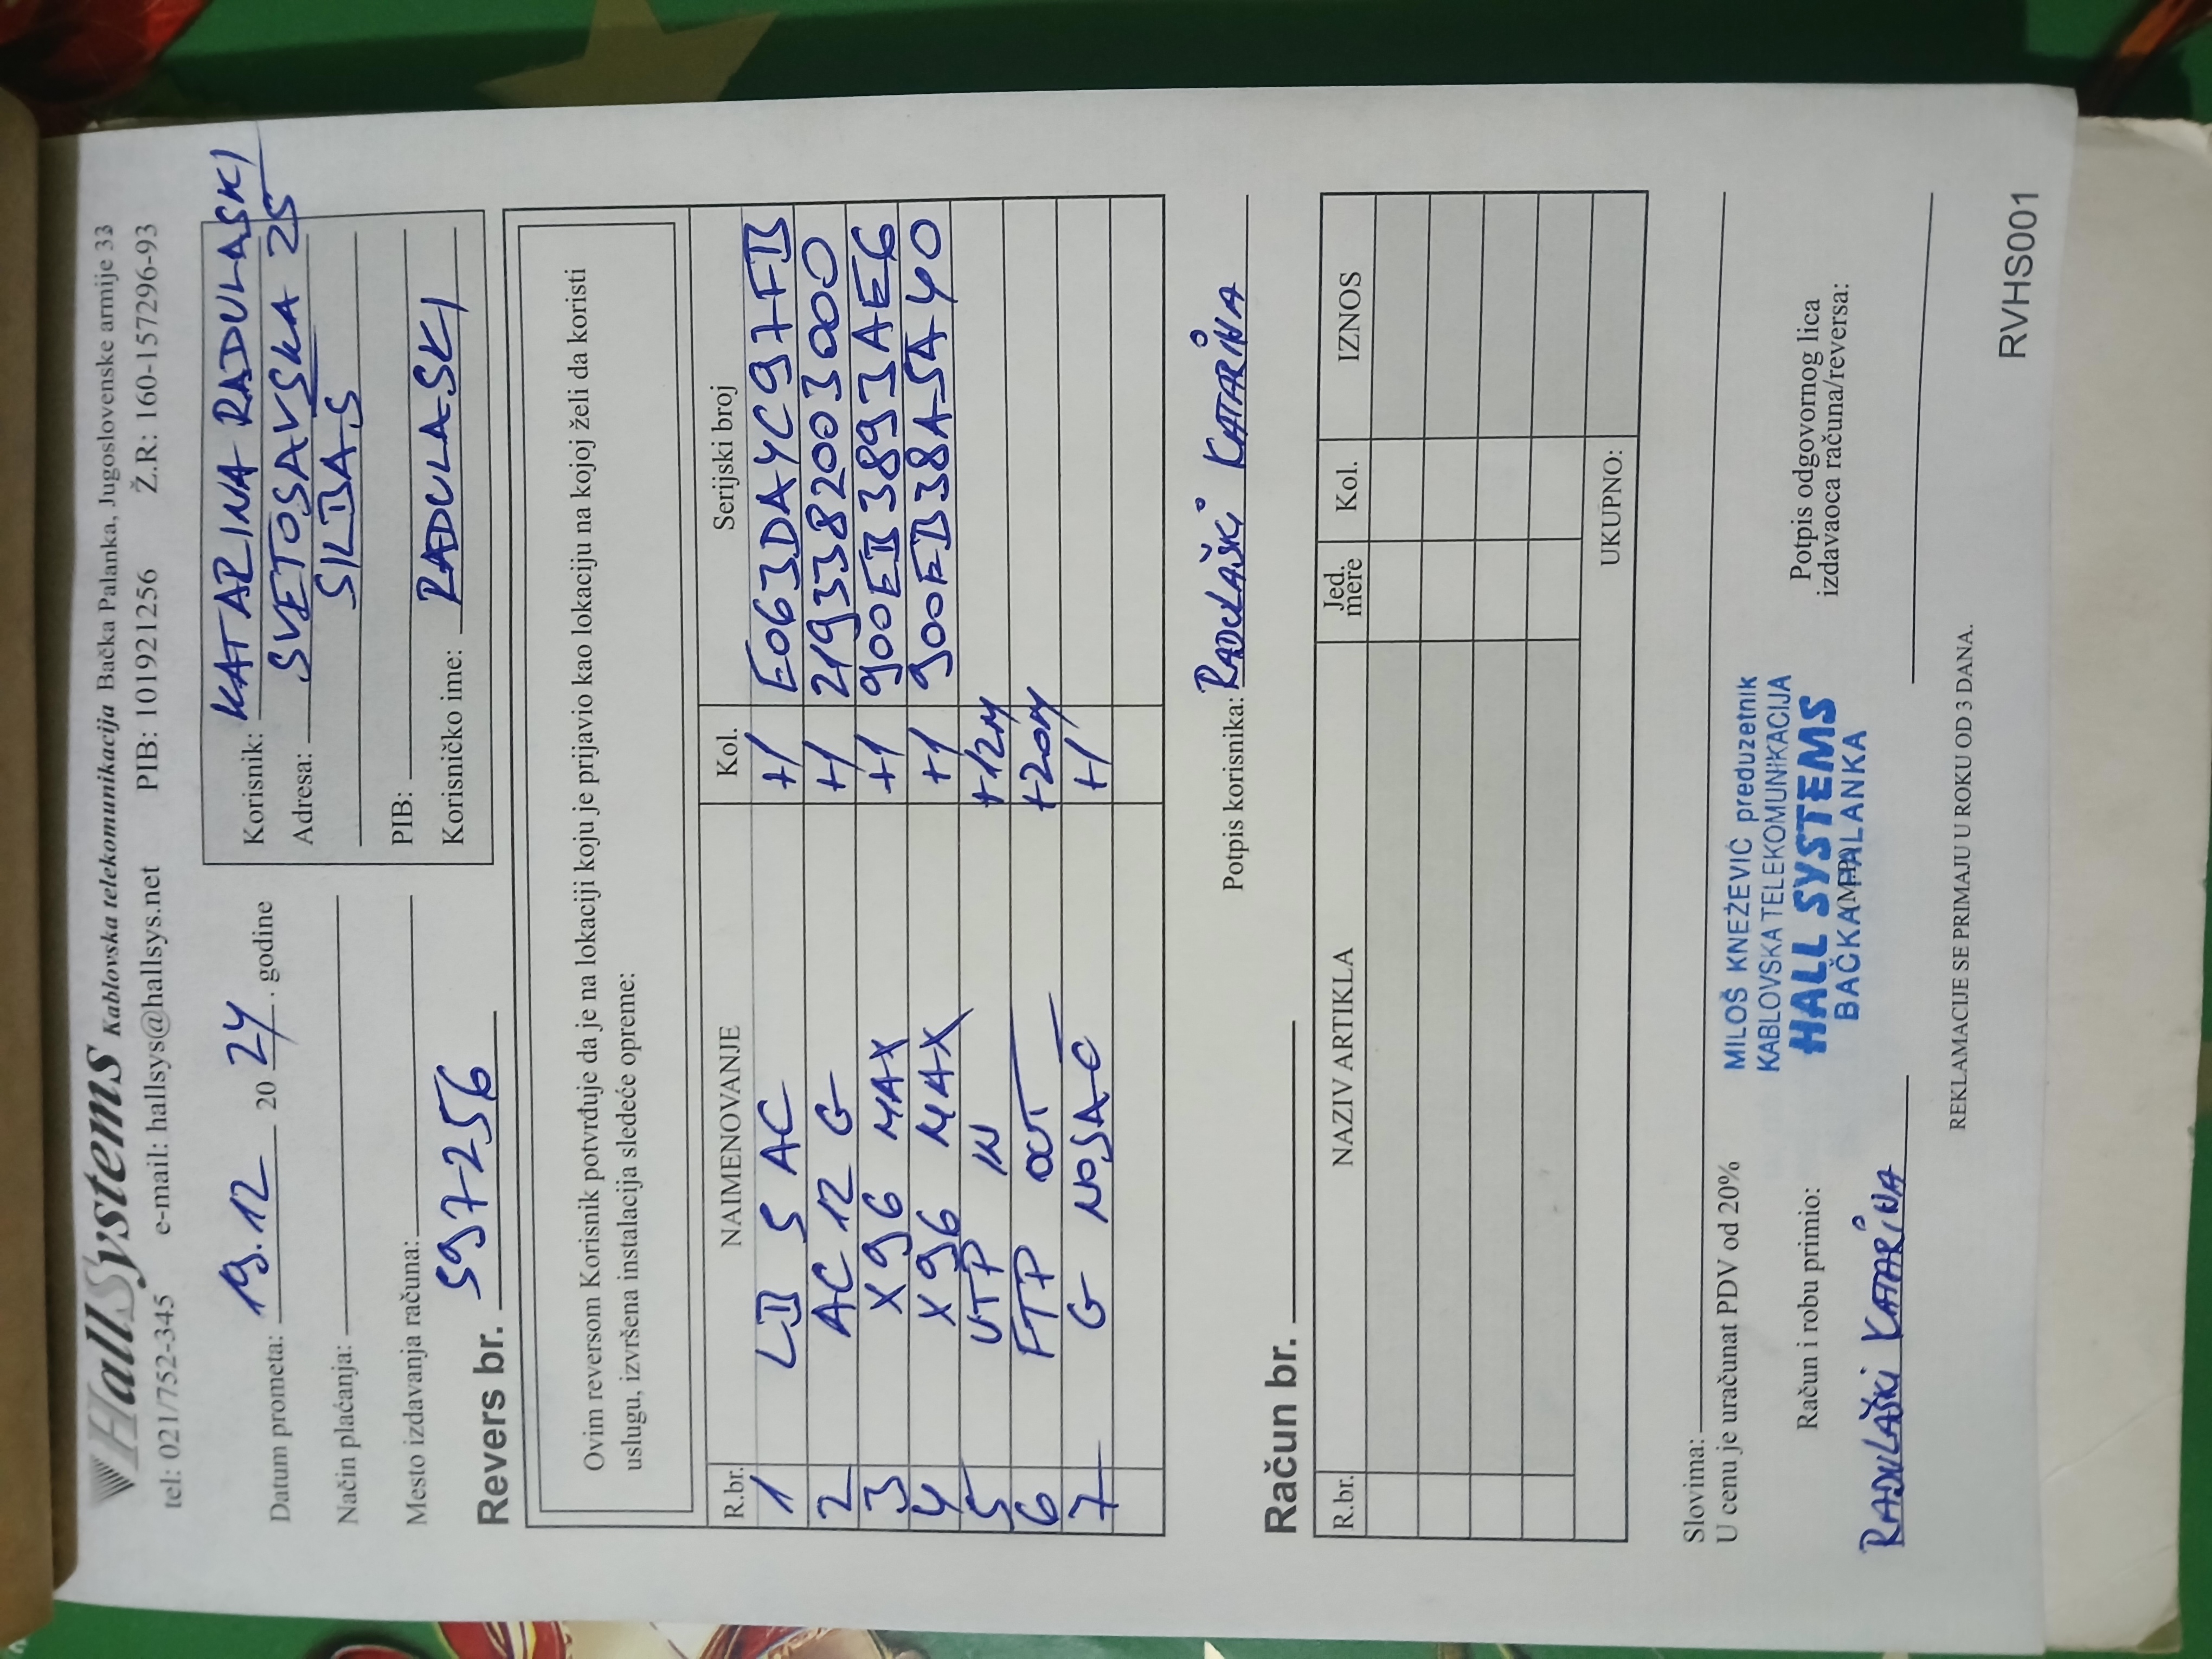 HallSystems Kablovska telekomunikacija Bačka Palanka, Jugoslovenske armije 33
tel: 021/752-345 e-mail: hallsys@hallsys.net PIB: 101921256 Ž.R: 160-157296-93
Datum prometa: 19.12 20 24. godine
Način plaćanja:
Mesto izdavanja računa:
Korisnik: KATARINA RADULASKI
Adresa: SVETOSAVSKA 25
SILBAS
PIB:
Korisničko ime: RADULASKI
Revers br. 597256
Ovim reversom Korisnik potvrđuje da je na lokaciji koju je prijavio kao lokaciju na kojoj želi da koristi
uslugu, izvršena instalacija sledeće opreme:
R.br. NAIMENOVANJE Kol. Serijski broj
1 LB 5 AC +1 E063DA4C97FB
2 AC 12 G +1 2193382003000
3 X96 MAX +1 900EB3893AE6
4 X96 MAX +1 900EB38A5A40
5 UTP IN +12M
6 FTP OUT +20M
7 G NOSAC +1
Potpis korisnika: RADULAŠKI KATARINA
Račun br.
R.br. NAZIV ARTIKLA Jed. mere Kol. IZNOS
UKUPNO:
Slovima:
U cenu je uračunat PDV od 20%
Račun i robu primio:
RADULAŠKI KATARINA
MILOŠ KNEŽEVIĆ preduzetnik
KABLOVSKA TELEKOMUNIKACIJA
HALL SYSTEMS
BAČKA PALANKA
Potpis odgovornog lica
izdavaoca računa/reversa:
REKLAMACIJE SE PRIMAJU U ROKU OD 3 DANA.
RVHS001